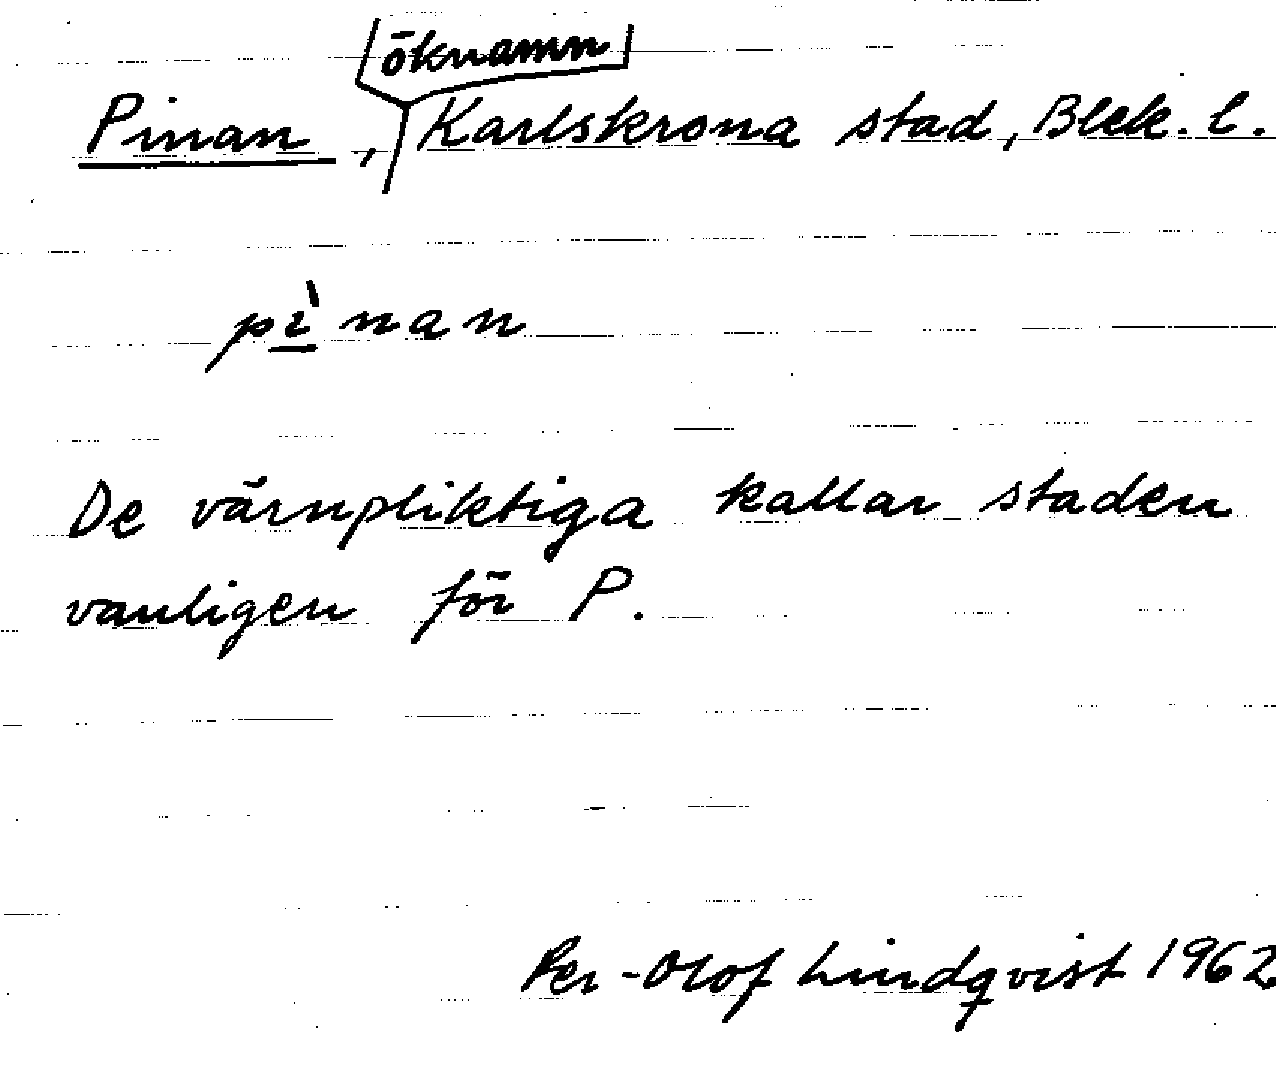 Pinan, öknamn Karlskrona stad, Blek. l.
pì̱nan
De värnpliktiga kallar staden
vanligen för P.
Per-Olof Lindqvist 1962